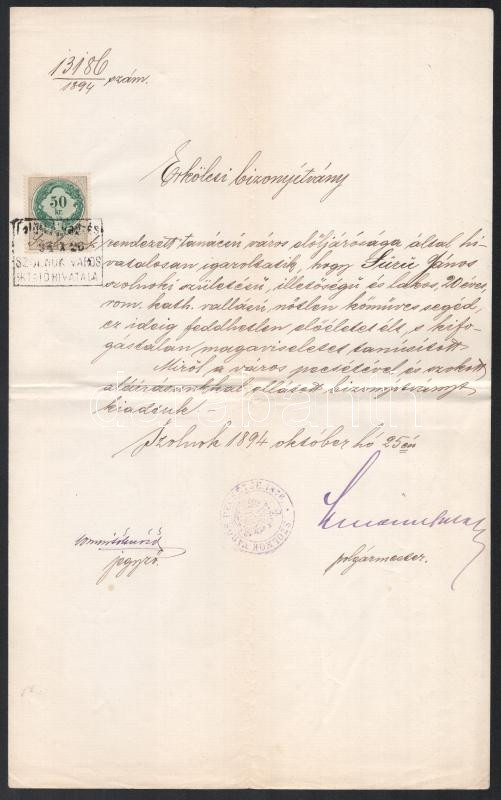 13186
1894 szám.
Erkölcsi bizonyítvány
50
kr.
SZOLNOK VÁROS
IKTATÓHIVATALA
rendezett tanácsú város elöljárósága által hi-
vatalosan igazoltatik, hogy Szücs János
szolnoki születésü, illetőségü és lakos, 20 éves,
rom. kath. vallású, nőtlen kőmüves segéd,
ez ideig feddhetlen előéletet élt, s kifo-
gástalan magaviseletet tanúsított.
Miről a város pecsétével és szokott
aláírásunkkal ellátott bizonyítványt
kiadtuk. –
Szolnok 1894 október hó 25én
jegyző
polgármester.
darabanth